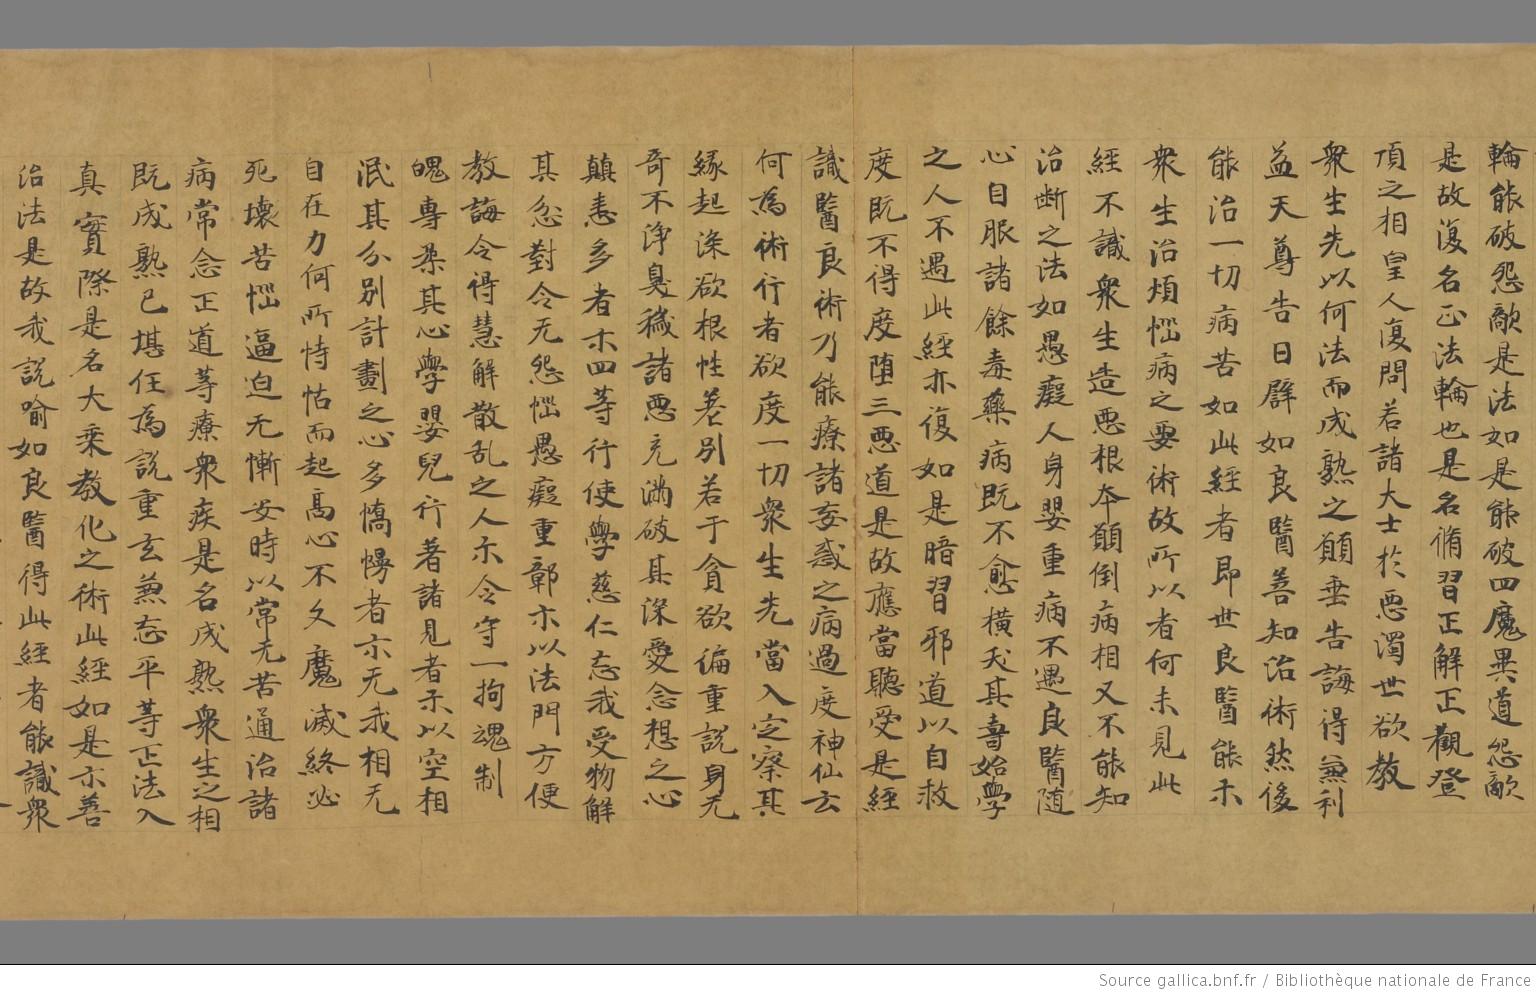 輪能破怨敵是法如是能破四魔異道怨敵
是故復名正法輪也是名脩習正解正觀登
頂之相皇人復問若諸大士於惡濁世欲教
衆生先以何法而成熟之願垂告誨得兼利
益天尊告曰辟如良醫善知治術然後
能治一切病苦如此經者即世良醫能示
衆生治煩惱病之要術故所以者何未見此
經不識衆生造惡根本顛倒病相又不能知
治断之法如愚癡人身嬰重病不遇良醫随
心自服諸餘毒藥病既不愈橫夭其壽始學
之人不遇此經亦復如是暗習邪道以自救
度既不得度堕三惡道是故應當聽受是經
識醫良術乃能療諸妄惑之病過度神仙云
何為術行者欲度一切衆生先當入定察其
緣起深欲根性差別若于貪欲偏重說身无
奇不淨臭穢諸惡充滿破其深愛念想之心
顛恚多者示四等行使學慈仁忘我受物解
其忿對令无怨惱愚癡重鄣示以法門方便
教誨令得慧解散乱之人示令守一拘魂制
魄專柔其心學嬰兒行著諸見者示以空相
泯其分別計劃之心多憍慢者示无我相无
自在力何所恃怙而起高心不久魔滅終必
死壞苦惱逼迫无慚安時以常无苦通治諸
病常念正道等療衆疾是名成熟衆生之相
既成熟已堪任為說重玄兼忘平等正法入
真實際是名大乘教化之術此經如是示善
治法是故我說喻如良醫得此經者能識衆
Source gallica.bnf.fr / Bibliothèque nationale de France